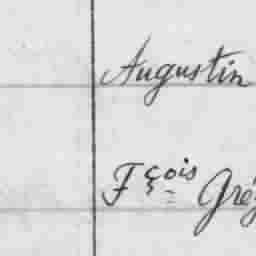 Augustin
Fçois Gré